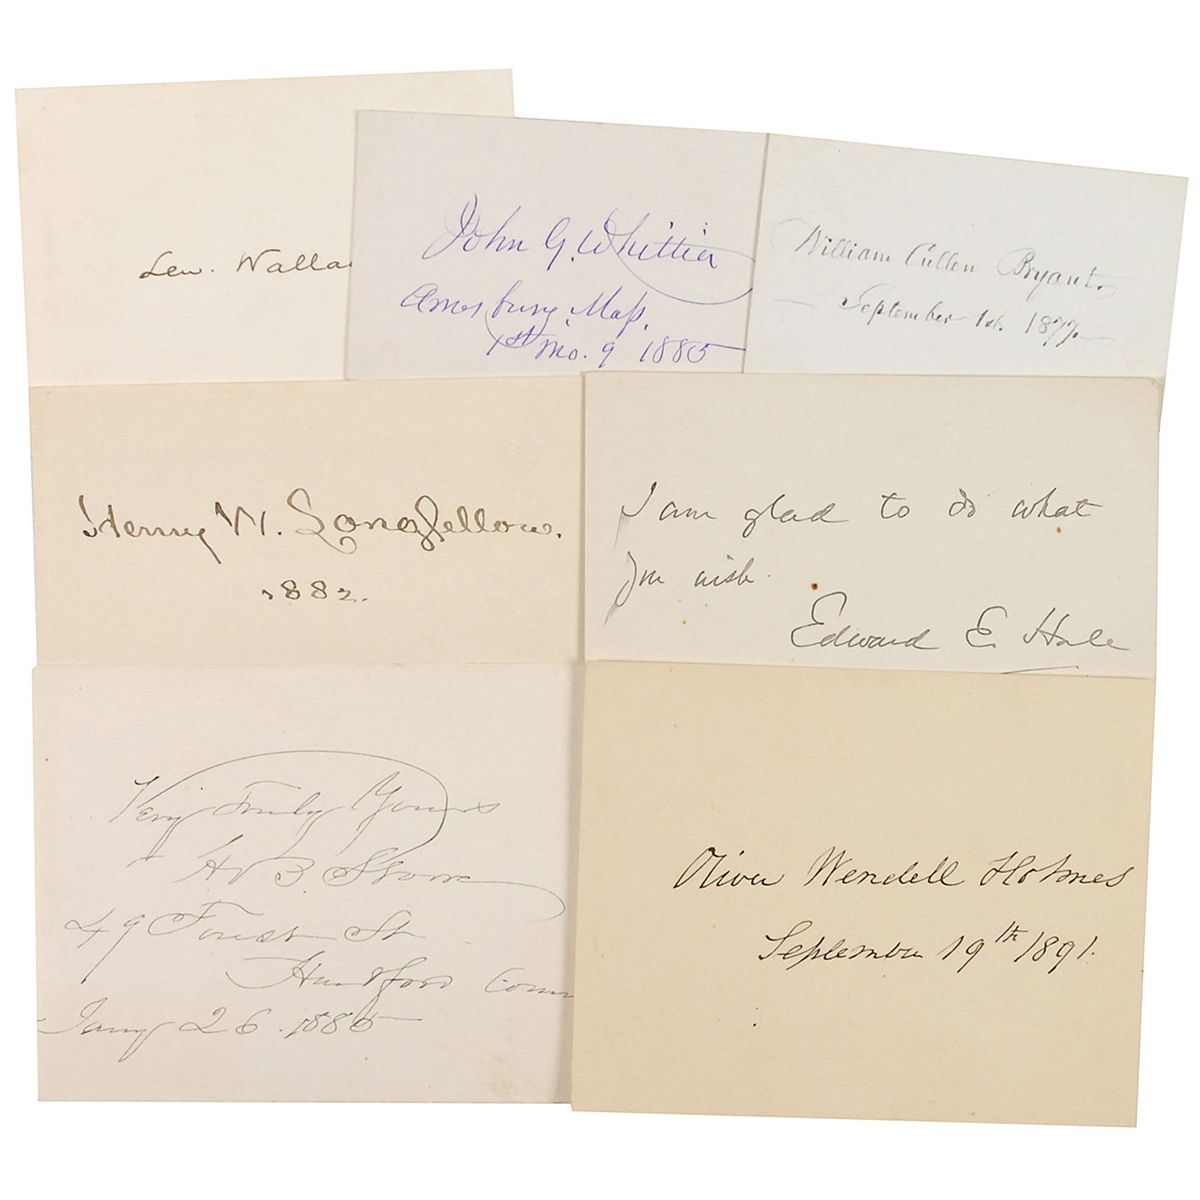 Lew. Walla
John G. Whittier
Amesbury, Mass,
1st mo. 9 1885
William Cullen Bryant.
September 1st. 1877.
Henry W. Longfellow.
1882.
I am glad to do what
you wish.
Edward E. Hale
Very Truly Yours
H B Stowe
49 Forest St
Hartford Conn
Jany 26. 1885
Oliver Wendell Holmes
September 19th 1891.